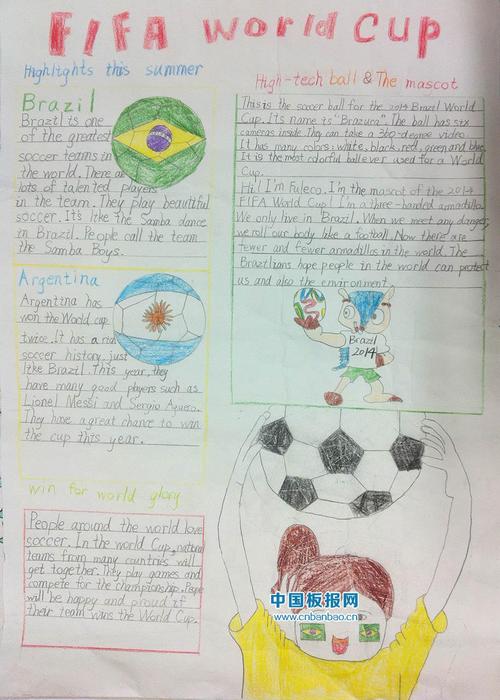 FIFA World Cup
Highlights this summer
Brazil
Brazil is one
of the greatest
soccer teams in
the world. There are
lots of talented players
in the team. They play beautiful
soccer. It's like the Samba dance
in Brazil. People call the team
the Samba Boys.
Argentina
Argentina has
won the World cup
twice. It has a rich
soccer history, just
like Brazil. This year, they
have many good players such as
Lionel Messi and Sergio Aguero.
They have a great chance to win
the cup this year.
win for world glory
People around the world love
soccer. In the world Cup, national
teams from many countries will
get together. They play games and
compete for the championship. People
will be happy and proud if
their team wins the World Cup.
High-tech ball & The mascot
This is the soccer ball for the 2014 Brazil World
Cup. Its name is "Brazuca". The ball has six
cameras inside. They can take a 360-degree video.
It has many colors: white, black, red, green and blue.
It is the most colorful ball ever used for a World
Cup.
Hi! I'm Fuleco. I'm the mascot of the 2014
FIFA World Cup! I'm a three-banded armadillo.
We only live in Brazil. When we meet any danger,
we roll our body like a football. Now there are
fewer and fewer armadillos in the world. The
Brazilians hope people in the world can protect
us and also the environment.
Brazil
2014
中国板报网
www.cnbanbao.cn